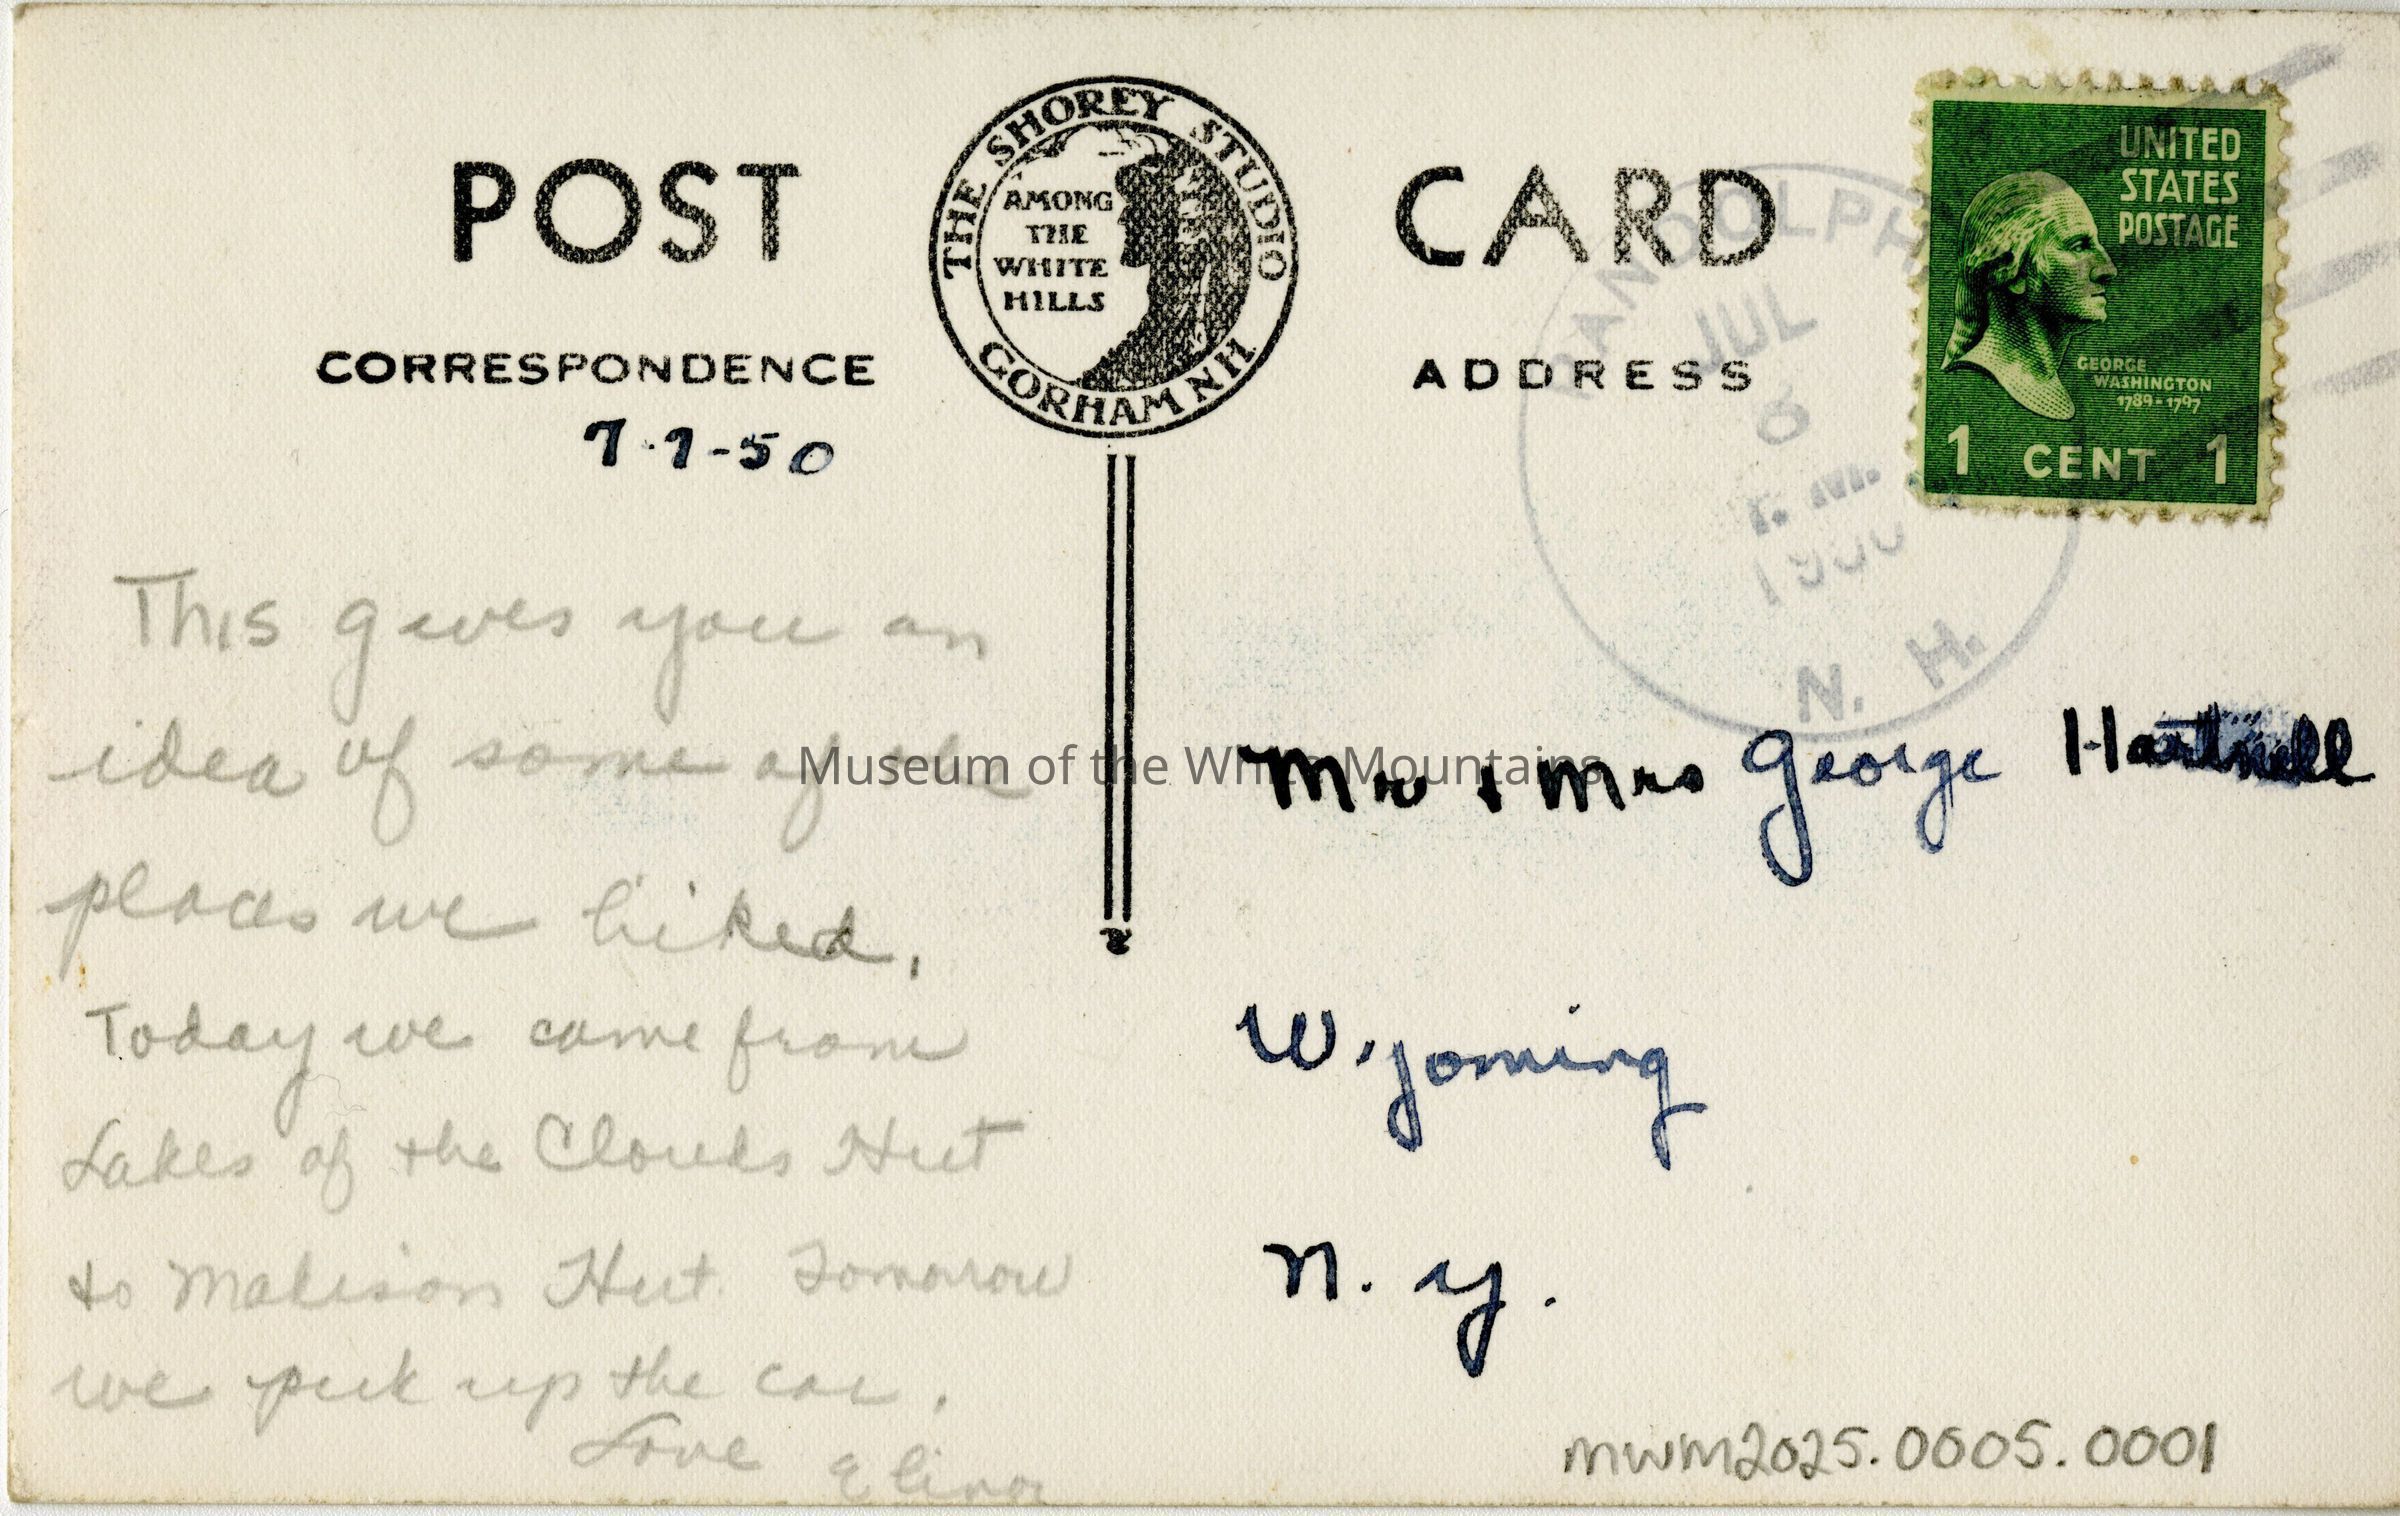 POST CARD
THE SHOREY STUDIO
AMONG
THE
WHITE
HILLS
GORHAM NH.
CORRESPONDENCE
ADDRESS
7-7-50
UNITED
STATES
POSTAGE
GEORGE
WASHINGTON
1789-1797
1 CENT 1
RANDOLPH
JUL
8
P. M.
1950
N. H.
This gives you an
idea of some of the
places we hiked.
Today we came from
Lakes of the Clouds Hut
to Madison Hut. Tomorrow
we pick up the car.
Love
Elinor
Mr & Mrs George Hartnell
Wyoming
N. Y.
Museum of the White Mountains
MWM2025.0005.0001